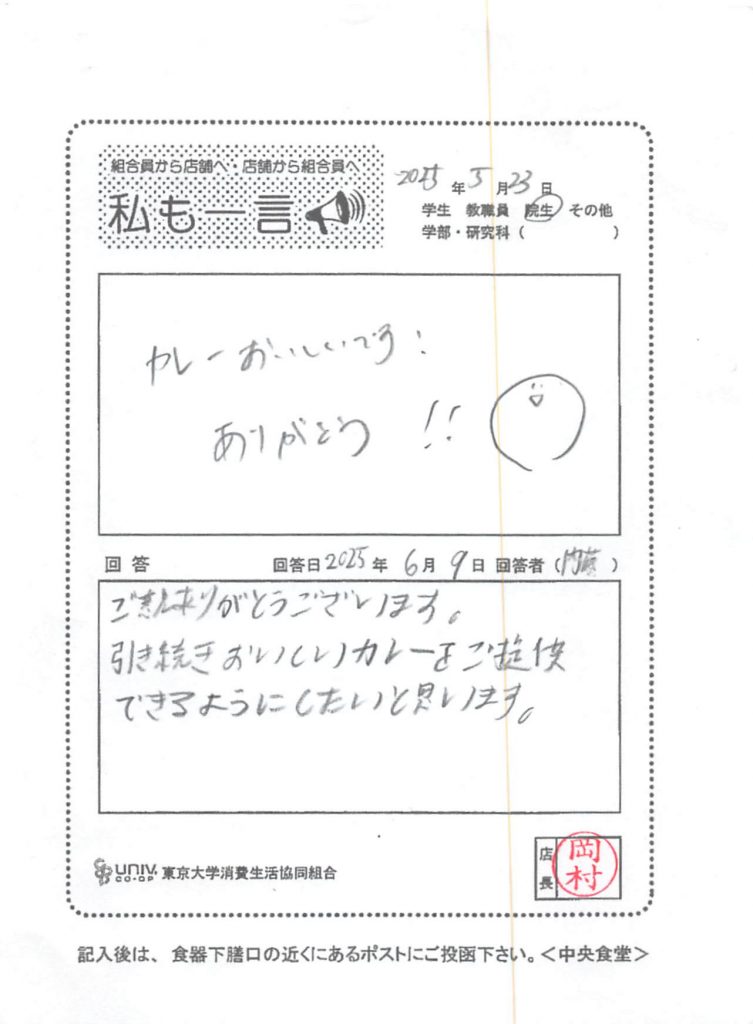 組合員から店舗へ・店舗から組合員へ
私も一言
2025年5月23日
学生 教職員 院生 その他
学部・研究科( )
カレーおいしいです!
ありがとう!!
回答 回答日2025年6月9日 回答者(内藤)
ご意見ありがとうございます。
引き続きおいしいカレーをご提供
できるようにしたいと思います。
UNIV. CO-OP 東京大学消費生活協同組合
店長 岡村
記入後は、食器下膳口の近くにあるポストにご投函下さい。<中央食堂>